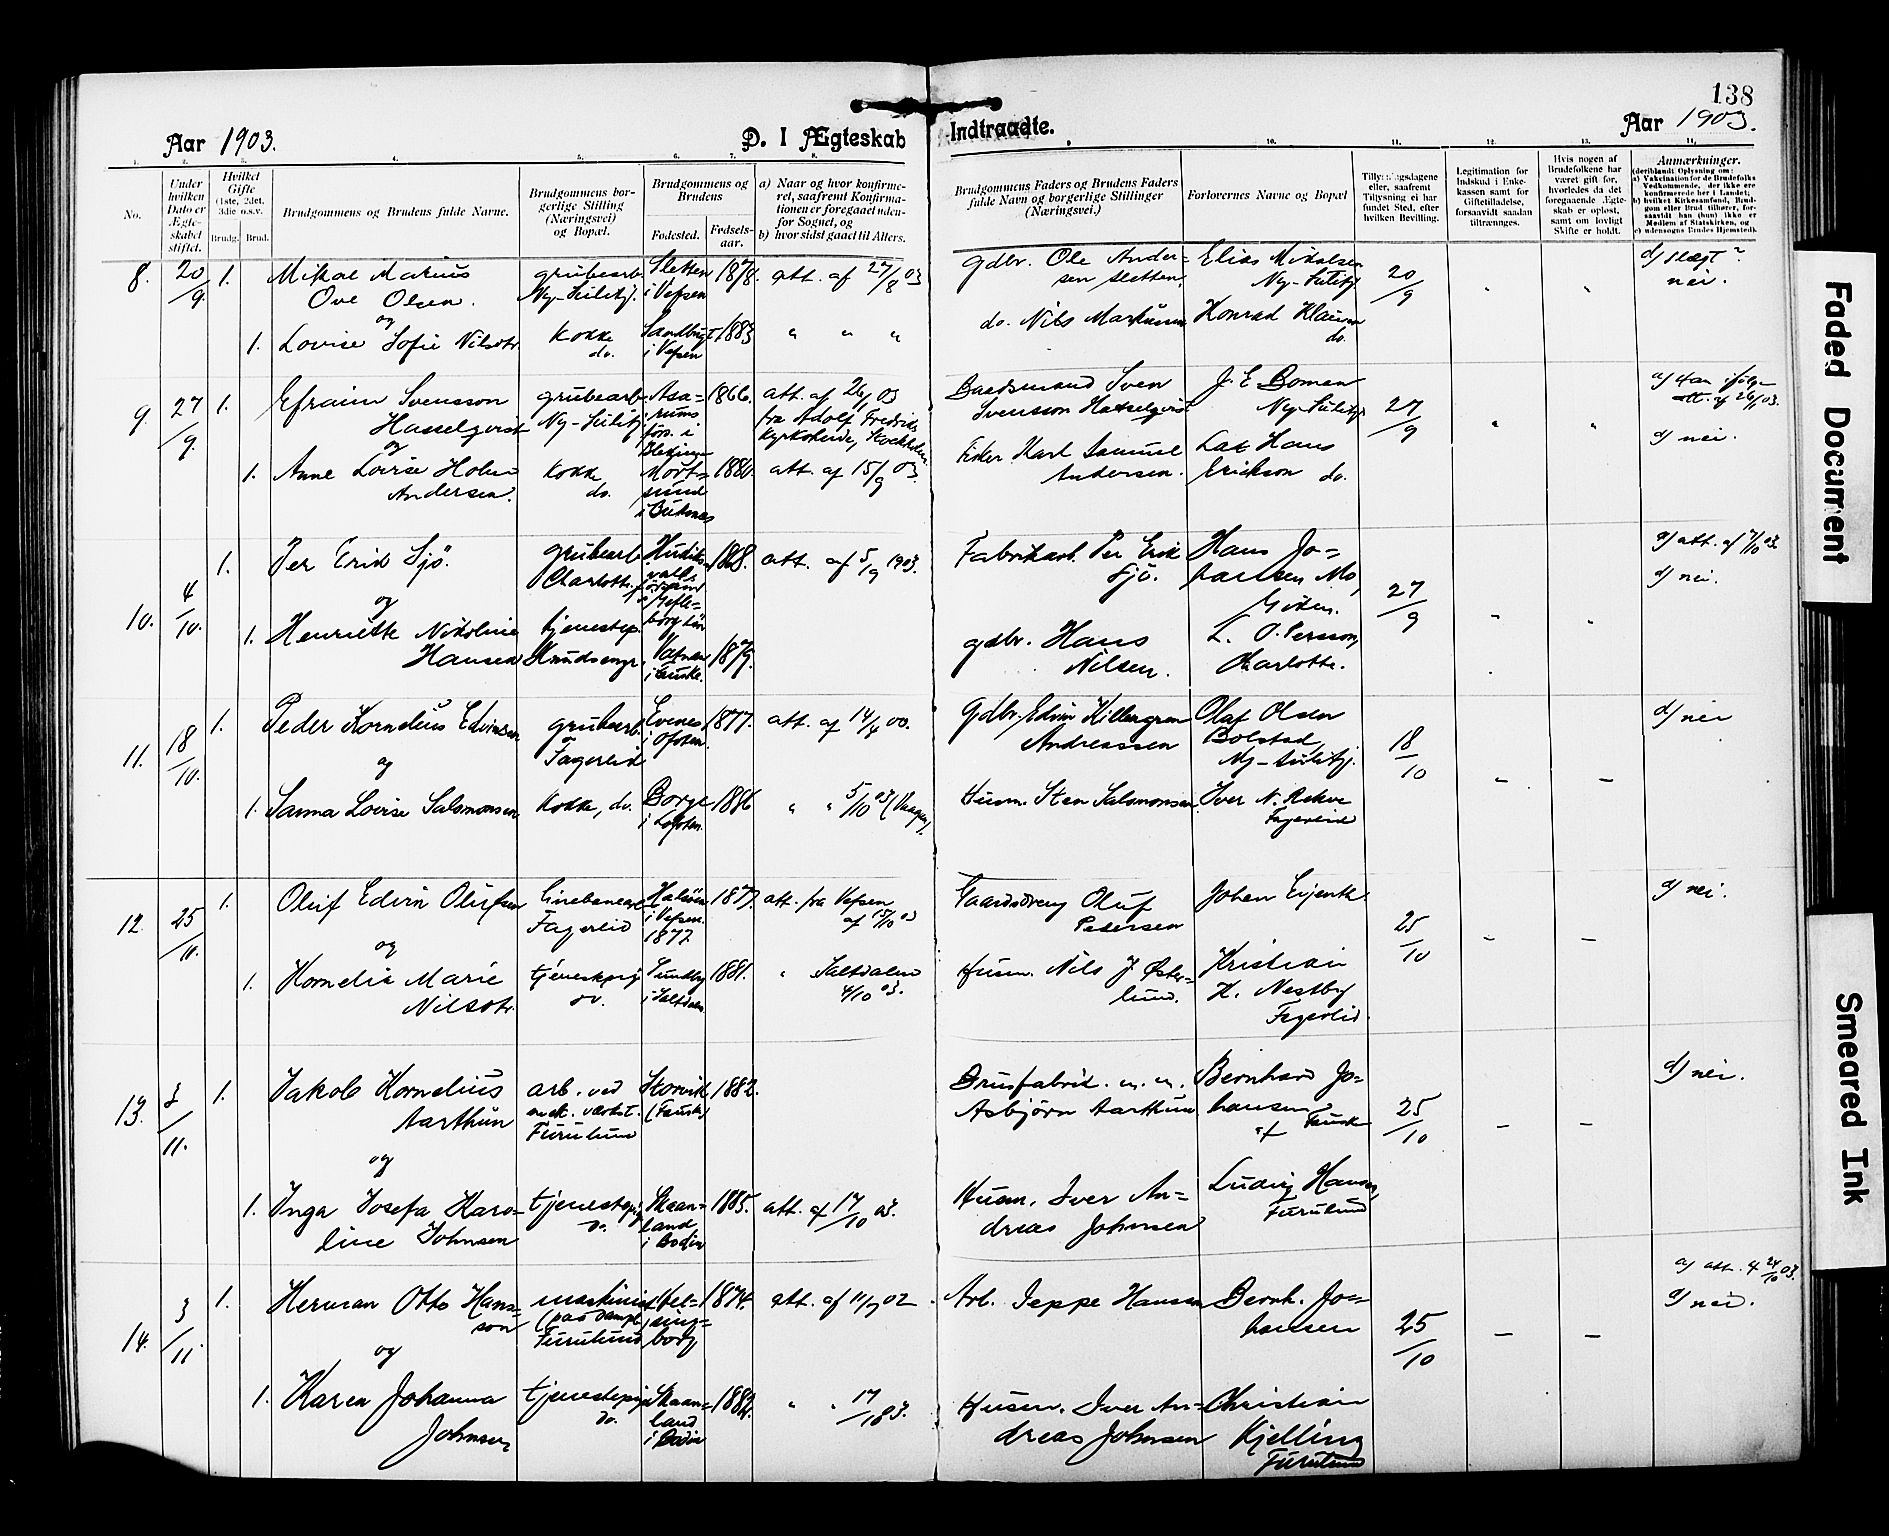 138
Aar 1903.
D. I Ægteskab Indtraadte.
Aar 1903.
No.
Under hvilken Dato er Ægteskabet stiftet.
Hvilket Gifte (1ste, 2det, 3die o.s.v.
Brudg.
Brud.
Brudgommens og Brudens fulde Navne.
Brudgommens borgerlige Stilling (Næringsvei) og Bopæl.
Brudgommens og Brudens
Fødested.
Fødselsaar.
a) Naar og hvor konfirmeret, saafremt Konfirmationen er foregaaet udenfor Sognet, og
b) hvor sidst gaaet til Alters.
Brudgommens Faders og Brudens Faders fulde Navn og borgerlige Stillinger (Næringsvei.)
Forlovernes Navne og Bopæl
Tillysningsdagene eller, saafremt Tillysning ei har fundet Sted, efter hvilken Bevilling.
Legitimation for Indskud i Enkekassen samt for Giftetilladelse, forsaavidt saadan tiltrænges.
Hvis nogen af Brudefolkene har været gift før, hvorledes da det foregaaende Ægteskab er opløst, samt om lovligt Skifte er holdt.
Anmærkninger.
8. 20/9. 1.
Mikal Marius
Ove Olsen.
og
1. Lovise Sofie Nilsdtr.
grubearb.
Ny-Sulitj.
Kokke
do.
Sletten
i Vefsen
1878.
att. af 27/8 03
Sandbugt
i Vefsen
1883
" " "
gdbr. Ole Andersen Sletten,
do. Nils Markussen
Elias Mikalsen
Ny-Sulitj.
Konrad Klausen
do.
20/9
d) slægt?
nei.
9. 27/9. 1.
Efraim Svensson
Hasselqvist
og
1. Anne Lovise Holm
Andersen.
grubearb.
Ny-Sulitj.
Kokke
do.
Asarums
förs. i
Blekinge
1866.
att. af 26/1 03
fra Adolf Fredriks
Kyrkobeide, Stockholm
Mortsund
i Buksnæs
1880.
att. af 15/9 03.
Baadsmand Sven
Svensson Hasselqvist
Fisker Karl Samuel
Andersen.
J. E. Boman
Ny-Sulitj.
Lax Hans
Erikson do.
27/9
a) Han ifølge
att. af 26/1 03.
d) nei.
10. 4/10. 1.
Per Erik Sjö
og
1. Henriette Nikoline
Hansen
grubearb
Charlotta.
tjenestep.
Hudiksvalls
församl
i Gefleborg län
1868.
att. af 5/9 1903.
Vatnan
i Fuske.
1879.
Fabrikarb. Per Erik
Sjö.
gdbr. Hans
Nilsen.
Hans Johansen Mo,
Giken.
L. O. Persson,
Charlotta.
27/9
a) att. af 7/10 03.
d) nei.
11. 18/10. 1.
Peder Kornelius Edvinsen
og
1. Sanna Lovise Salomonsen
grubearb.
Fagerlid
Kokke, do.
Evenes
i Ofoten.
1877.
att. af 14/4 00.
Borge
i Lofoten.
1886
" " 5/10 03 (Vaagan).
Gdbr. Edvin Killengreen
Andreassen
Husm. Sten Salomonsen
Olaf Olsen
Bolstad,
Ny-Sulitj.
Iver N. Rekve
Fagerlid
18/10
d) nei
12. 25/11. 1.
Oluf Edvin Olufsen
og
1. Kornelia Marie
Nilsdtr.
linebanearb
Fagerlid
tjenestepig
do.
i Vefsen.
1877
1877.
att. fra Vefsen
af 15/10 03
Sundby
i Saltdalen
1881.
" Saltdalen
4/10 03.
Gaardsdreng Oluf
Pedersen
Husm. Nils J. Østerlund.
Johan Evjenth.
Kristian
K. Nestby
Fagerlid.
25/10
d) nei.
13. 3/11. 1.
Jakob Kornelius
Aarthun
og
1. Inga Josefa Karoline Johnsen
arb. ved
mek. værkst.
Furulund
tjenestepig
do.
Storvik
(Fauske)
1882.
Skaanland
i Bodin
1885.
att. af 17/10 03.
Brusfabrik. m. m.
Asbjörn Aarthun
Husm. Iver Andreas Johnsen
Bernhard Johansen
af Fauske
Ludvig Hansen,
Furulund
25/10
d) nei.
14. 3/11. 1.
Herman Otto Hansson
og
1. Karen Johanna
Johnsen
maskinist
(paa Dampb.)
Furulund
tjenestepig
do.
Helsingborg
1874.
att. af 11/7 02.
Skaanland
i Bodin
1882.
" " 17/10 03.
Arb. Jeppe Hansen
Husm. Iver Andreas Johnsen
Bernh. Johansen
Christian
Kjelling
Furulund
25/10
a) att. af 24/10 03.
d) nei.
Faded Document
Smeared Ink